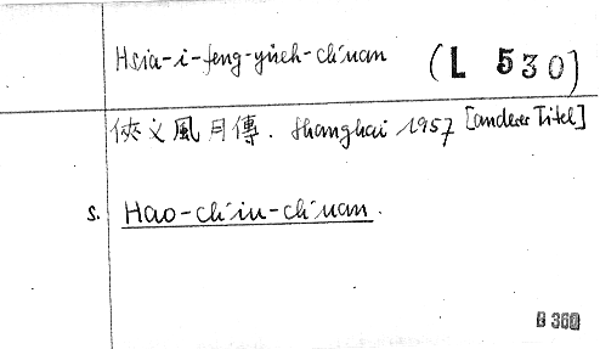 Hsia-i-feng-yüeh-ch'uan (L 530)
俠义風月傳. Shanghai 1957 [anderer Titel]
s. Hao-ch'iu-ch'uan.
B 360